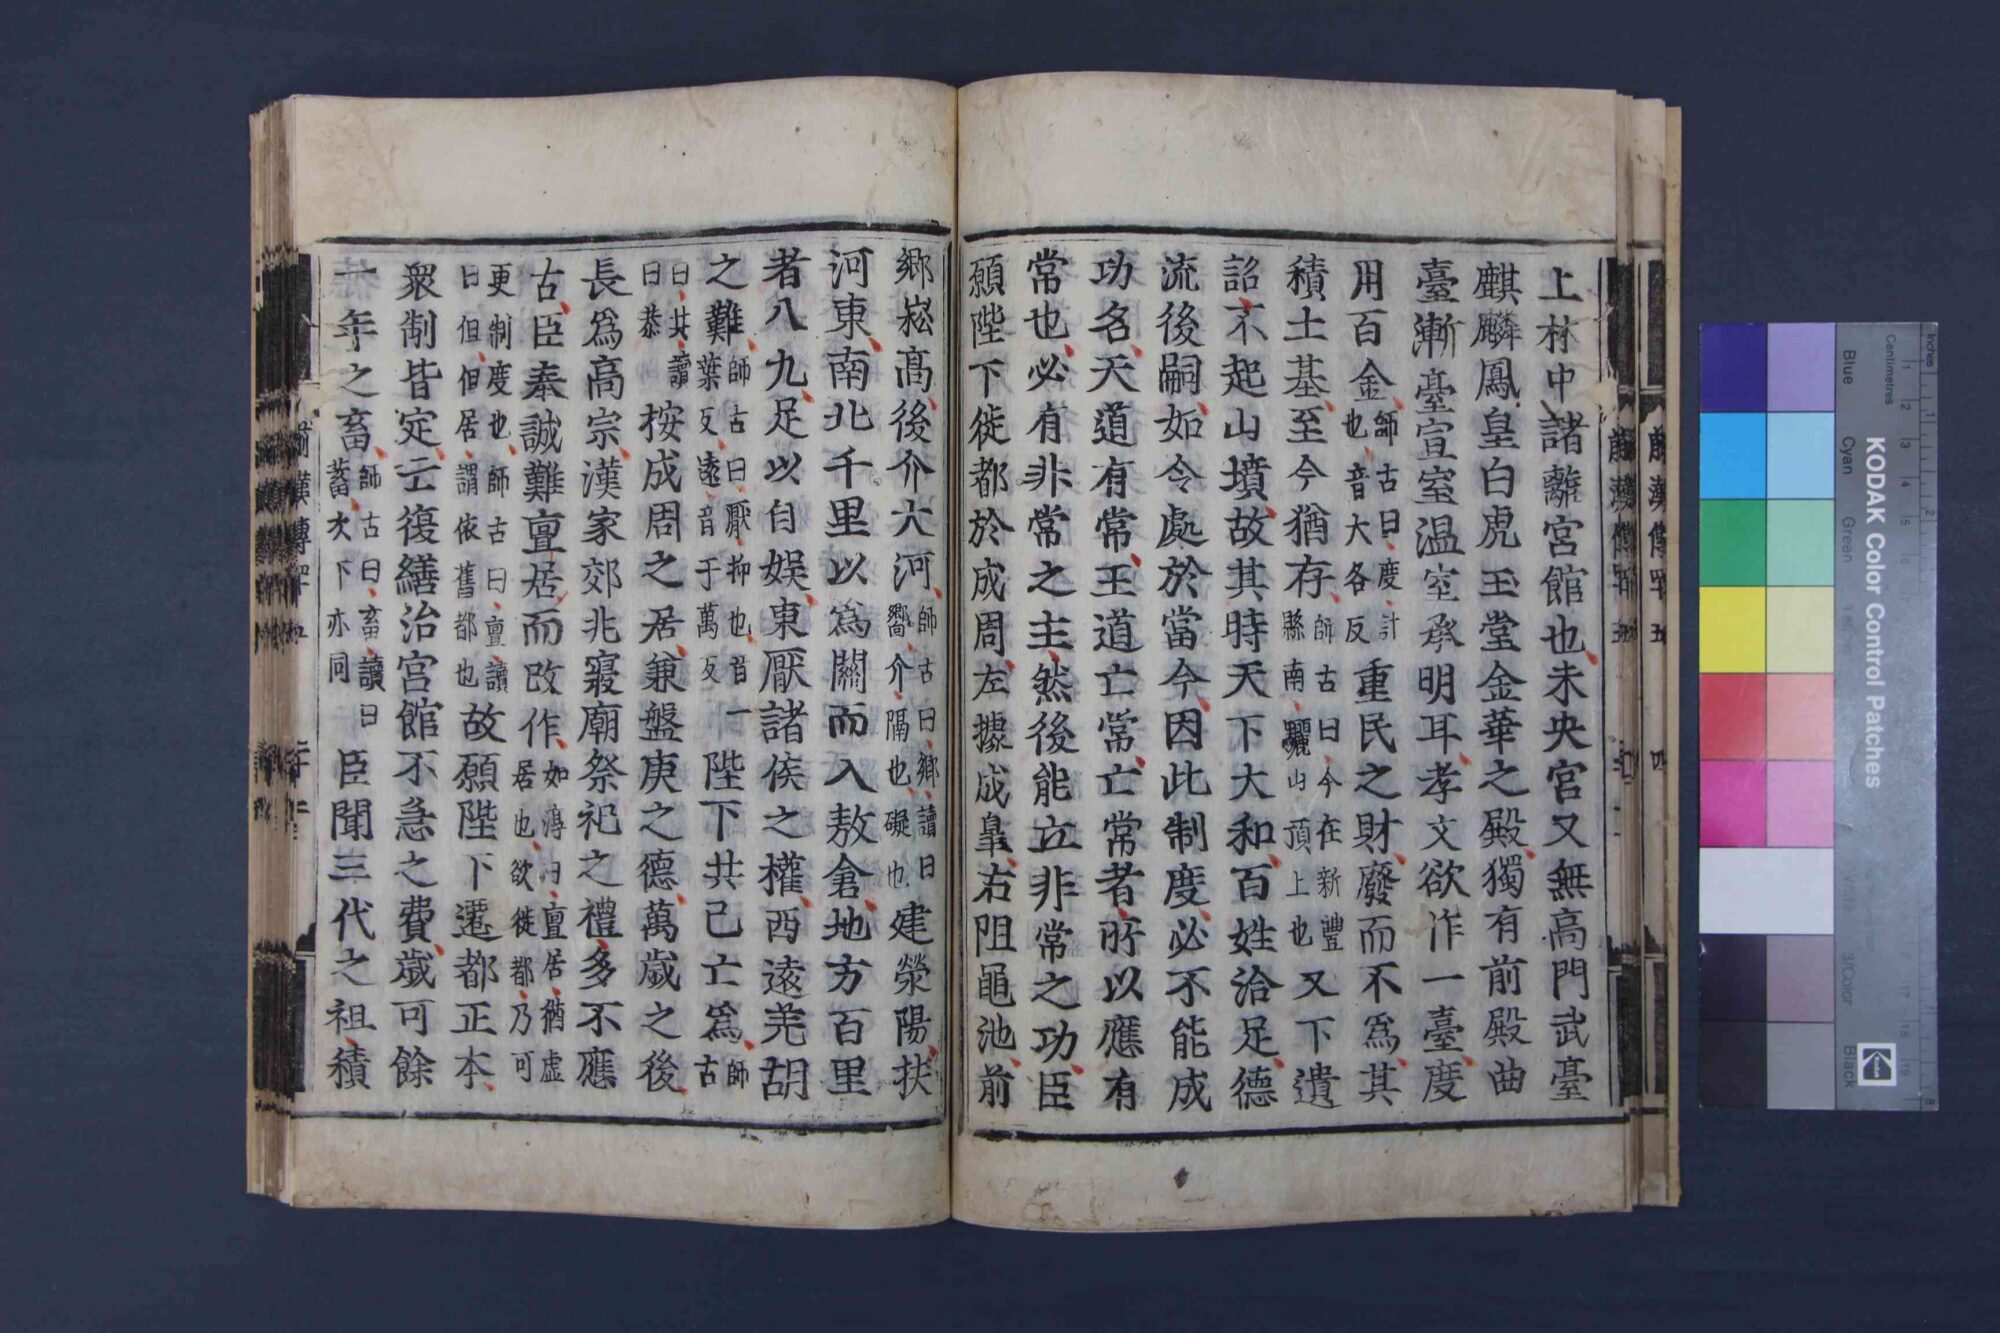 上林中諸離宮館也未央宮又無高門武臺
麒麟鳳皇白虎玉堂金華之殿獨有前殿曲
臺漸臺宣室溫室承明耳孝文欲作一臺度
用百金師古曰度計也音大各反重民之財廢而不爲其
積土基至今猶存師古曰今在新豐縣南驪山頂上也又下遺
詔不起山墳故其時天下大和百姓洽足德
流後嗣如令處於當今因此制度必不能成
功名天道有常王道亡常亡常者所以應有
常也必有非常之主然後能立非常之功臣
願陛下徙都於成周左據成皇右阻黽池前
鄉崧高後介大河師古曰鄉讀曰嚮介隔也礙也建滎陽扶
河東南北千里以爲關而入敖倉地方百里
者八九足以自娱東厭諸侯之權西遠羌胡
之難師古曰厭抑也音一葉反遠音于萬反陛下共已亡爲師古
曰共讀曰恭按成周之居兼盤庚之德萬歲之後
長爲高宗漢家郊兆寢廟祭祀之禮多不應
古臣奉誠難亶居而改作如淳曰亶居猶虛居也欲徙都乃可
更制度也師古曰亶讀曰但但居謂依舊都也故願陛下遷都正本
衆制皆定亡復繕治宮館不急之費歲可餘
一年之畜師古曰畜讀曰蓄次下亦同臣聞三代之祖積
前漢傳四十五
四